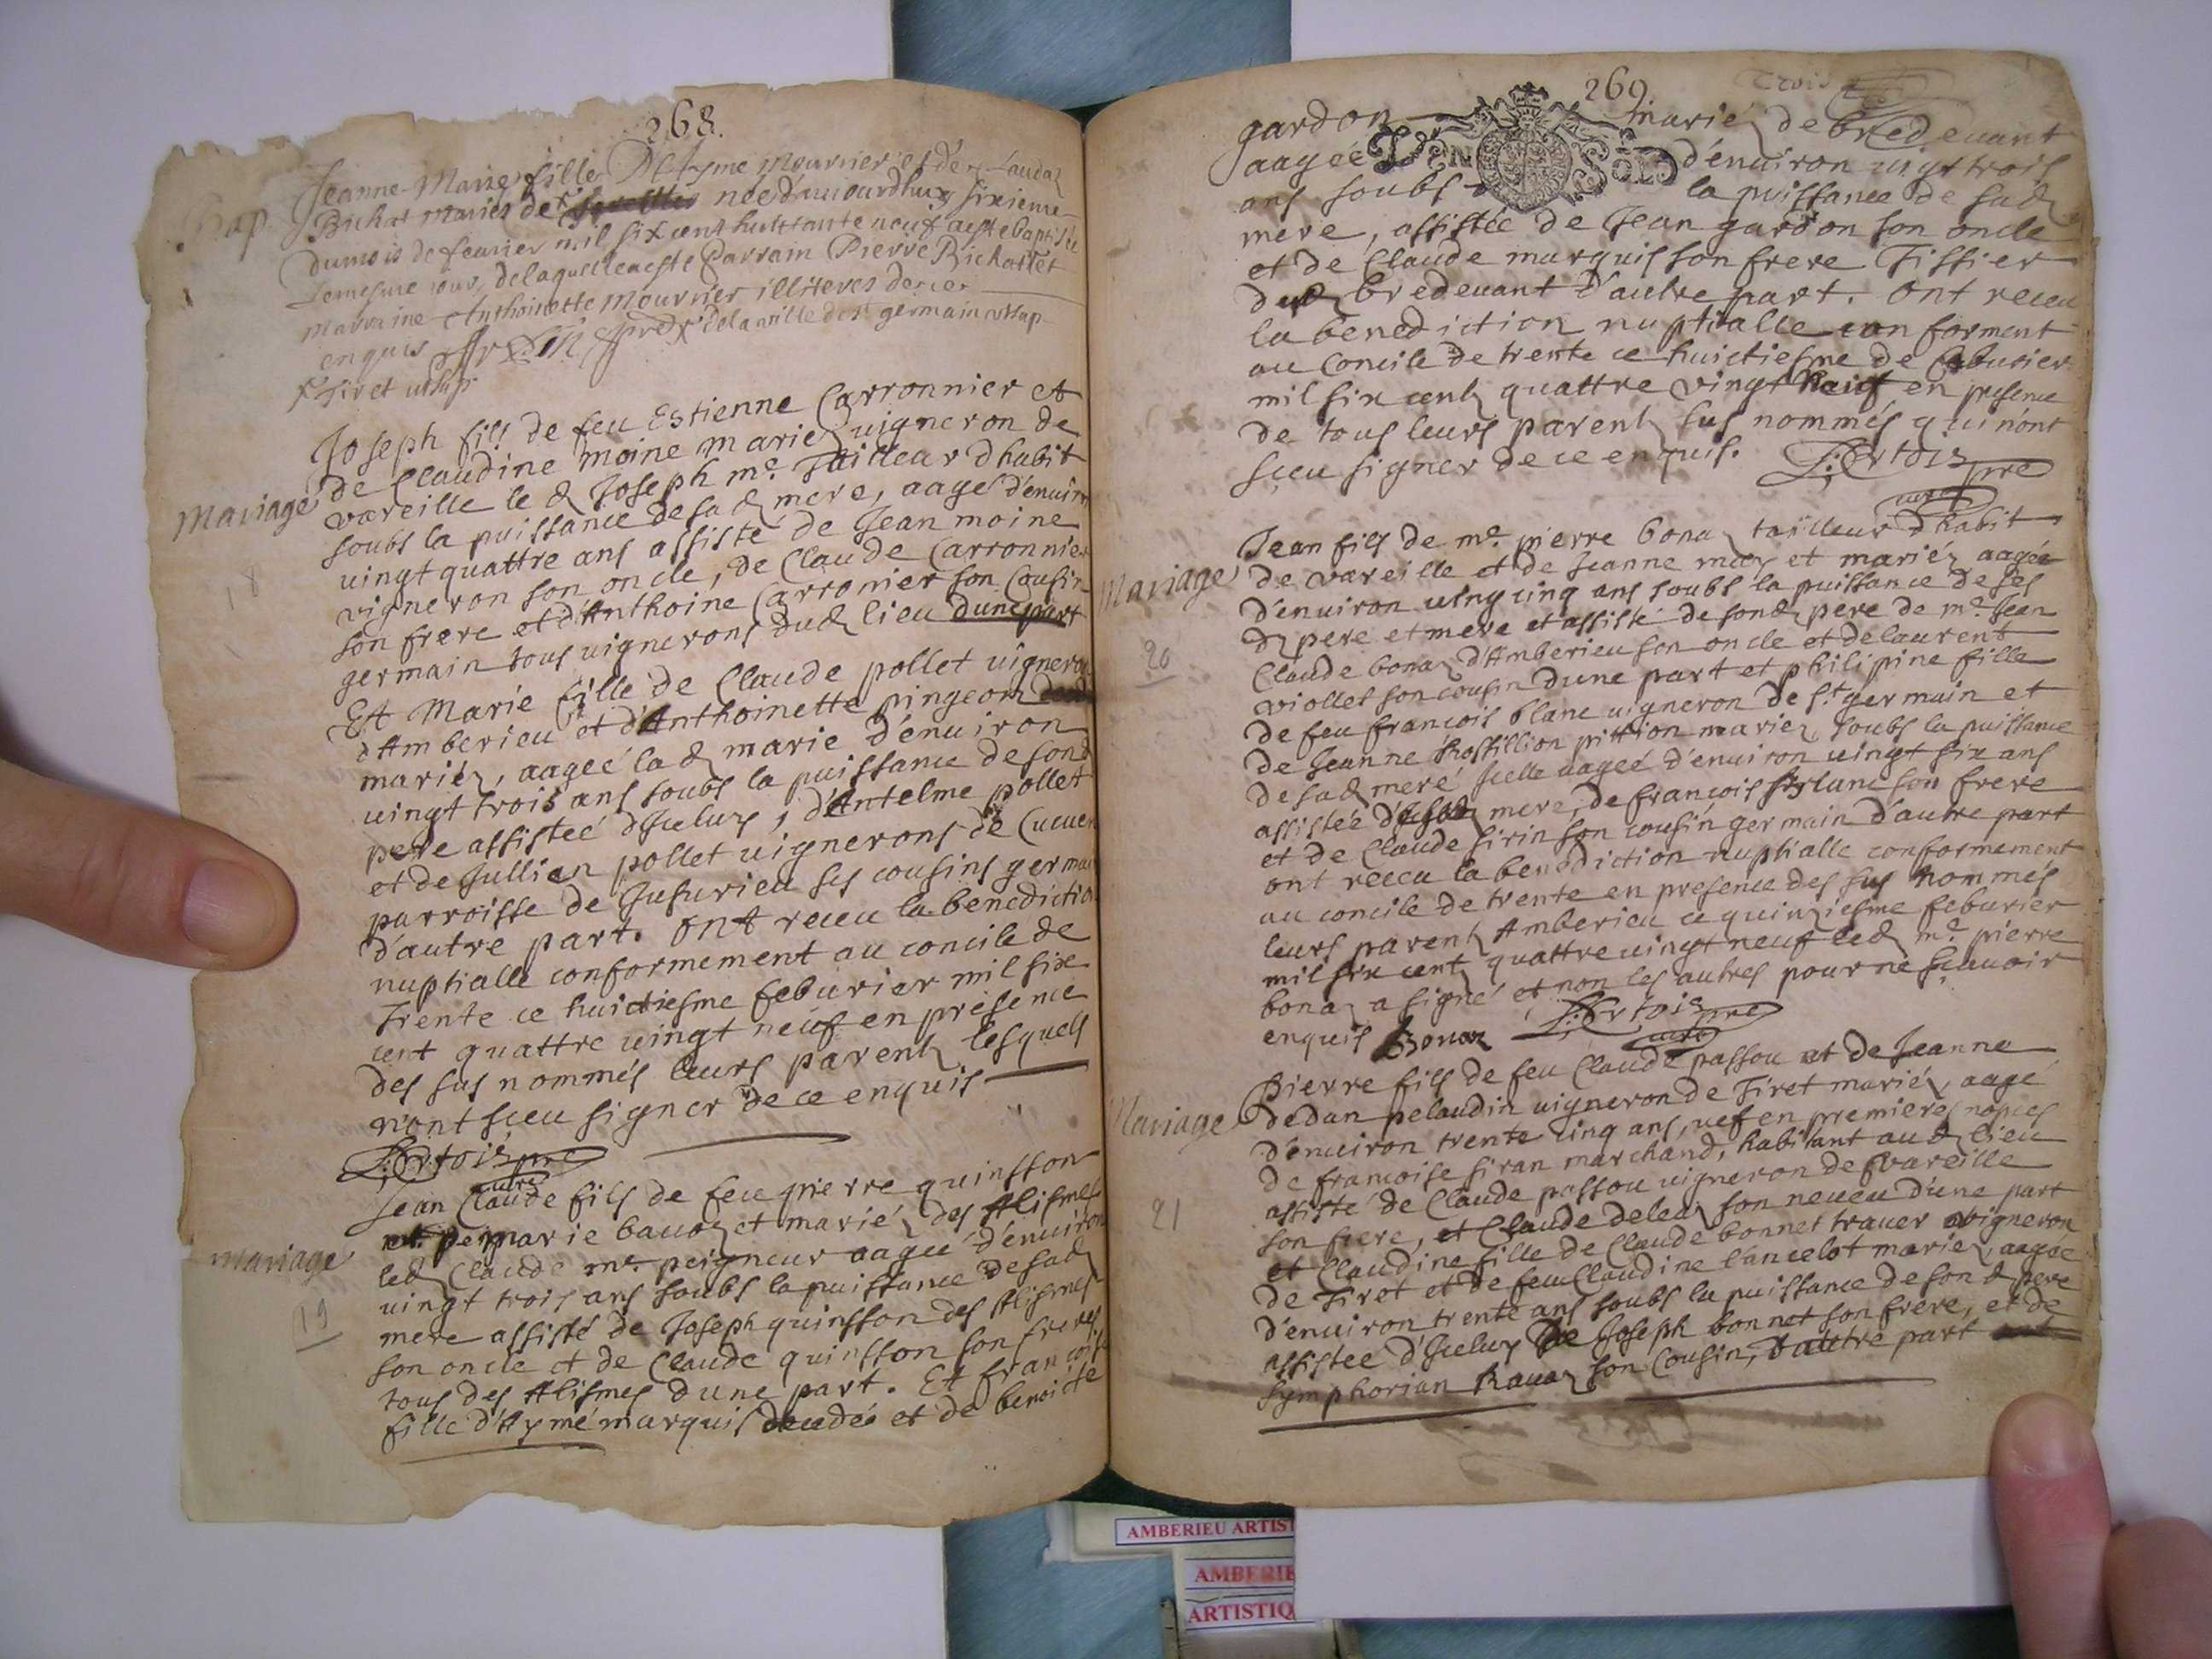 268.
Bap
Jeanne Marie fille Ayme Mournier et de Clauda
Bichat mariés de née d'aujourdhuy sixieme
dumois de feurier mil six cent huittante neuf a esté baptisée
lemesme jour, delaquelle a esté Parrain Pierre Richattet
marraine Anthoinette Mournier illiteres de ce
enquis delaville de st germain
Tiret
Mariage
18
Joseph fils de feu Estienne Carronnier et
de Claudine moine mariez vigneron de
vareille le d Joseph me Tailleur dhabit
soubs la puissance de sa d mere, aagé d'enuiron
uingt quattre ans assisté de Jean moine
vigneron son oncle, de Claude Carronnier
son frere et d'Anthoine Carronier son Cousin
germain tous uignerons dud lieu dune part
Et Marie fille de Claude pollet uigneron
d'Amberieu et d'Anthoinette pingeon
mariéz, aageé la d marie d'enuiron
uingt trois ans soubs la puissance de son d
pere assisteé d'Iceluy, d'Antelme pollet
et de Jullien pollet uignerons de Cucuen
parroisse de Jusurieu ses cousins germains
d'autre part. ont receu la benediction
nuptialle conformement au concile de
Trente ce huictiesme feburier mil six
cent quattre uingt neuf en présence
des sus nommés leurs parents lesquels
n'ont sceu signer de ce enquis
Ertois pre
curé
mariage
19
Jean Claude fils de feu pierre quinsson
et de marie bauoz et mariéz des Alismes
led Claude me peigneur aagée d'enuiron
uingt trois ans soubs la puissance de sad
mere assisté de Joseph quinsson des Alismes
son oncle et de Claude quinsson son frere
tous des Alismes dune part. Et francoise
fille d'Aymé marquis et de benoicte
269
Trois
gardon mariéz de bredeuant
aageé d'enuiron uigt trois
VN SOL
ans soubs la puissance de sad
mere, assistée de Jean gardon son oncle
et de Claude marquis son frere Tissier
dud bredeuant d'aultre part. ont receu
la benediction nuptialle conforment
au Concile de trente ce huictiesme de feburier
mil six cents quattre vingt neuf en presence
de tous leurs parents sus nommés qui n'ont
sceu signer de ce enquis. Ertois pre
curé
Mariage
20
Jean fils de me pierre bonaz tailleur d'habit
de vareille et de Jeanne mariéz aagée
d'enuiron uing cinq ans soubs la puissance de ses
d pere et mere et assisté de son d pere de me Jean
Claude bonaz d'Amberieu son oncle et de laurent
viollet son cousin dune part et philipine fille
de feu francois blanc uigneron de st germain et
de Jeanne Rossillion pittion mariez, soubs la puissance
de sa d meré Icelle aageé d'enuiron uingt six ans
assistée mere, de francois blanc son frere
et de Claude sirin son cousin germain d'autre part
ont receu la benediction nuptialle conformement
au concile de trente en presence des sus nommés
leurs parents Amberieu ce quinziesme feburier
mil six cents quattre uingt neuf led me pierre
bonaz a signé et non les autres pour ne sçauoir
enquis Bonaz Ertois pre
curé
Mariage
21
Pierre fils de feu Claude passou et de Jeanne
dedan pelaudin uigneron de Tiret mariéz, aagé
d'enuiron trente cinq ans, uef en premieres nopces
de francoise siran marchand, habitant au d lieu
assisté de Claude passou uigneron de vareille
son frere, et Claude son neueu d'une part
et Claudine fille de Claude bonnet trauer vigneron
de Tiret et de feu Claudine lancelot mariez, aagée
d'enuiron trente ans soubs la puissance de son d pere
assistée d'Iceluy de Joseph bonnet son frere, et de
symphorian Rauaz son Cousin, d'aultre part
AMBERIEU ARTIST
AMBERIE
ARTISTIQ